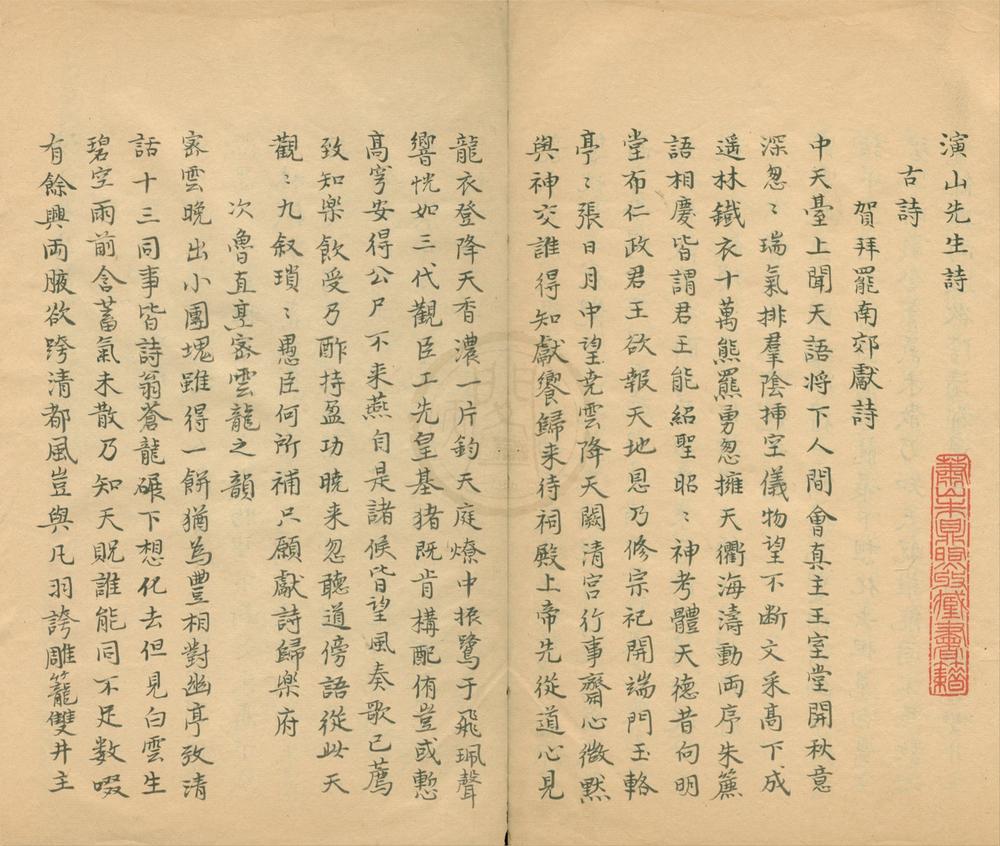 演山先生詩
古詩
賀拜罷南郊獻詩
中天臺上聞天語将下人間會真主王室堂開秋意
深忽〻瑞氣排羣陰揷空儀物望不断文采髙下成
遥林鐵衣十萬熊羆勇忽擁天衢海濤動両序朱簾
語相慶皆謂君王能紹聖昭〻神考體天徳昔向明
堂布仁政君王欲報天地恩乃修宗祀開端門玉輅
亭〻張日月中望尭雲降天闕清宫行事齋心微黙
與神交誰得知獻饗歸来待祠殿上帝先從道心見
龍衣登降天香濃一片鈞天庭燎中振鷺于飛珮聲
響恍如三代觀臣工先皇基猪既肯構配侑豈或慙
髙穹安得公尸不来燕自是諸候皆望風奏歌已薦
致知樂飲受乃酢持盈功曉来忽聽道傍語從此天
觀〻九叙瑣〻愚臣何所補只願獻詩歸樂府
次魯直烹宻雲龍之韻
宻雲晚出小團塊雖得一餅猶為豊相對幽亭致清
話十三同事皆詩翁蒼龍碾下想化去但見白雲生
碧空雨前含蓄氣未散乃知天貺誰能同不足數啜
有餘興両腋欲跨清都風豈與凡羽誇雕籠雙井主